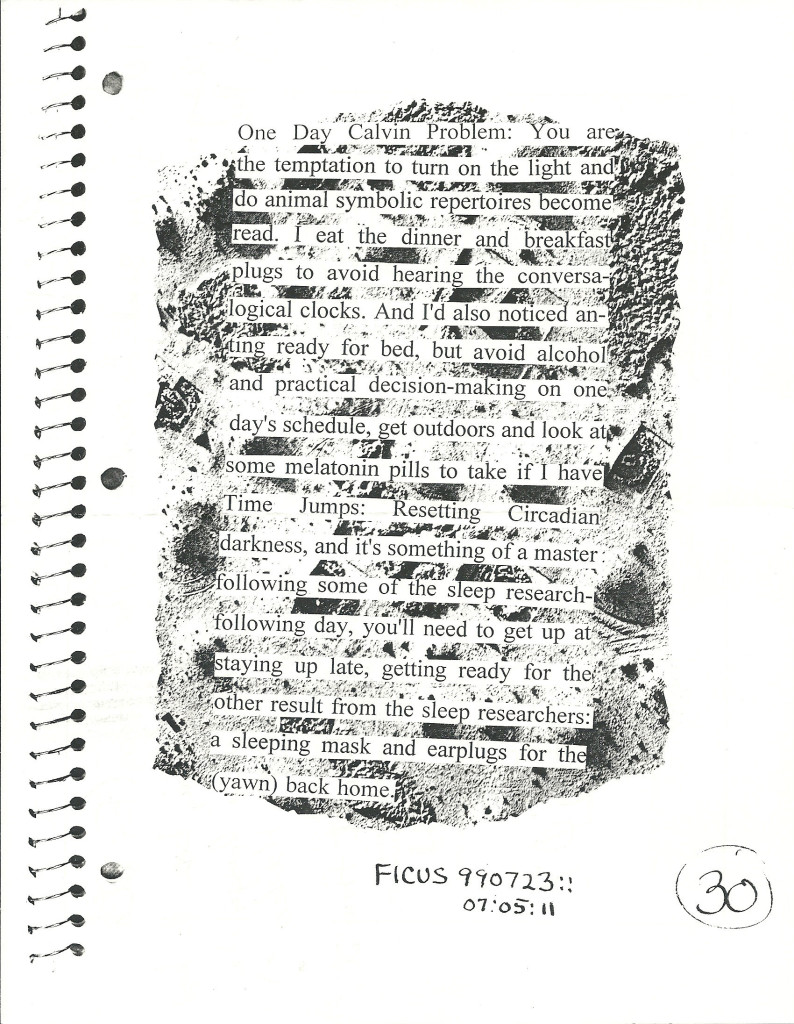 One Day Calvin Problem: You are
the temptation to turn on the light and
do animal symbolic repertoires become
read. I eat the dinner and breakfast
plugs to avoid hearing the conversa-
logical clocks. And I'd also noticed an-
ting ready for bed, but avoid alcohol
and practical decision-making on one
day's schedule, get outdoors and look at
some melatonin pills to take if I have
Time Jumps: Resetting Circadian
darkness, and it's something of a master
following some of the sleep research-
following day, you'll need to get up at
staying up late, getting ready for the
other result from the sleep researchers:
a sleeping mask and earplugs for the
(yawn) back home.
FICUS 990723::
07:05:11
30